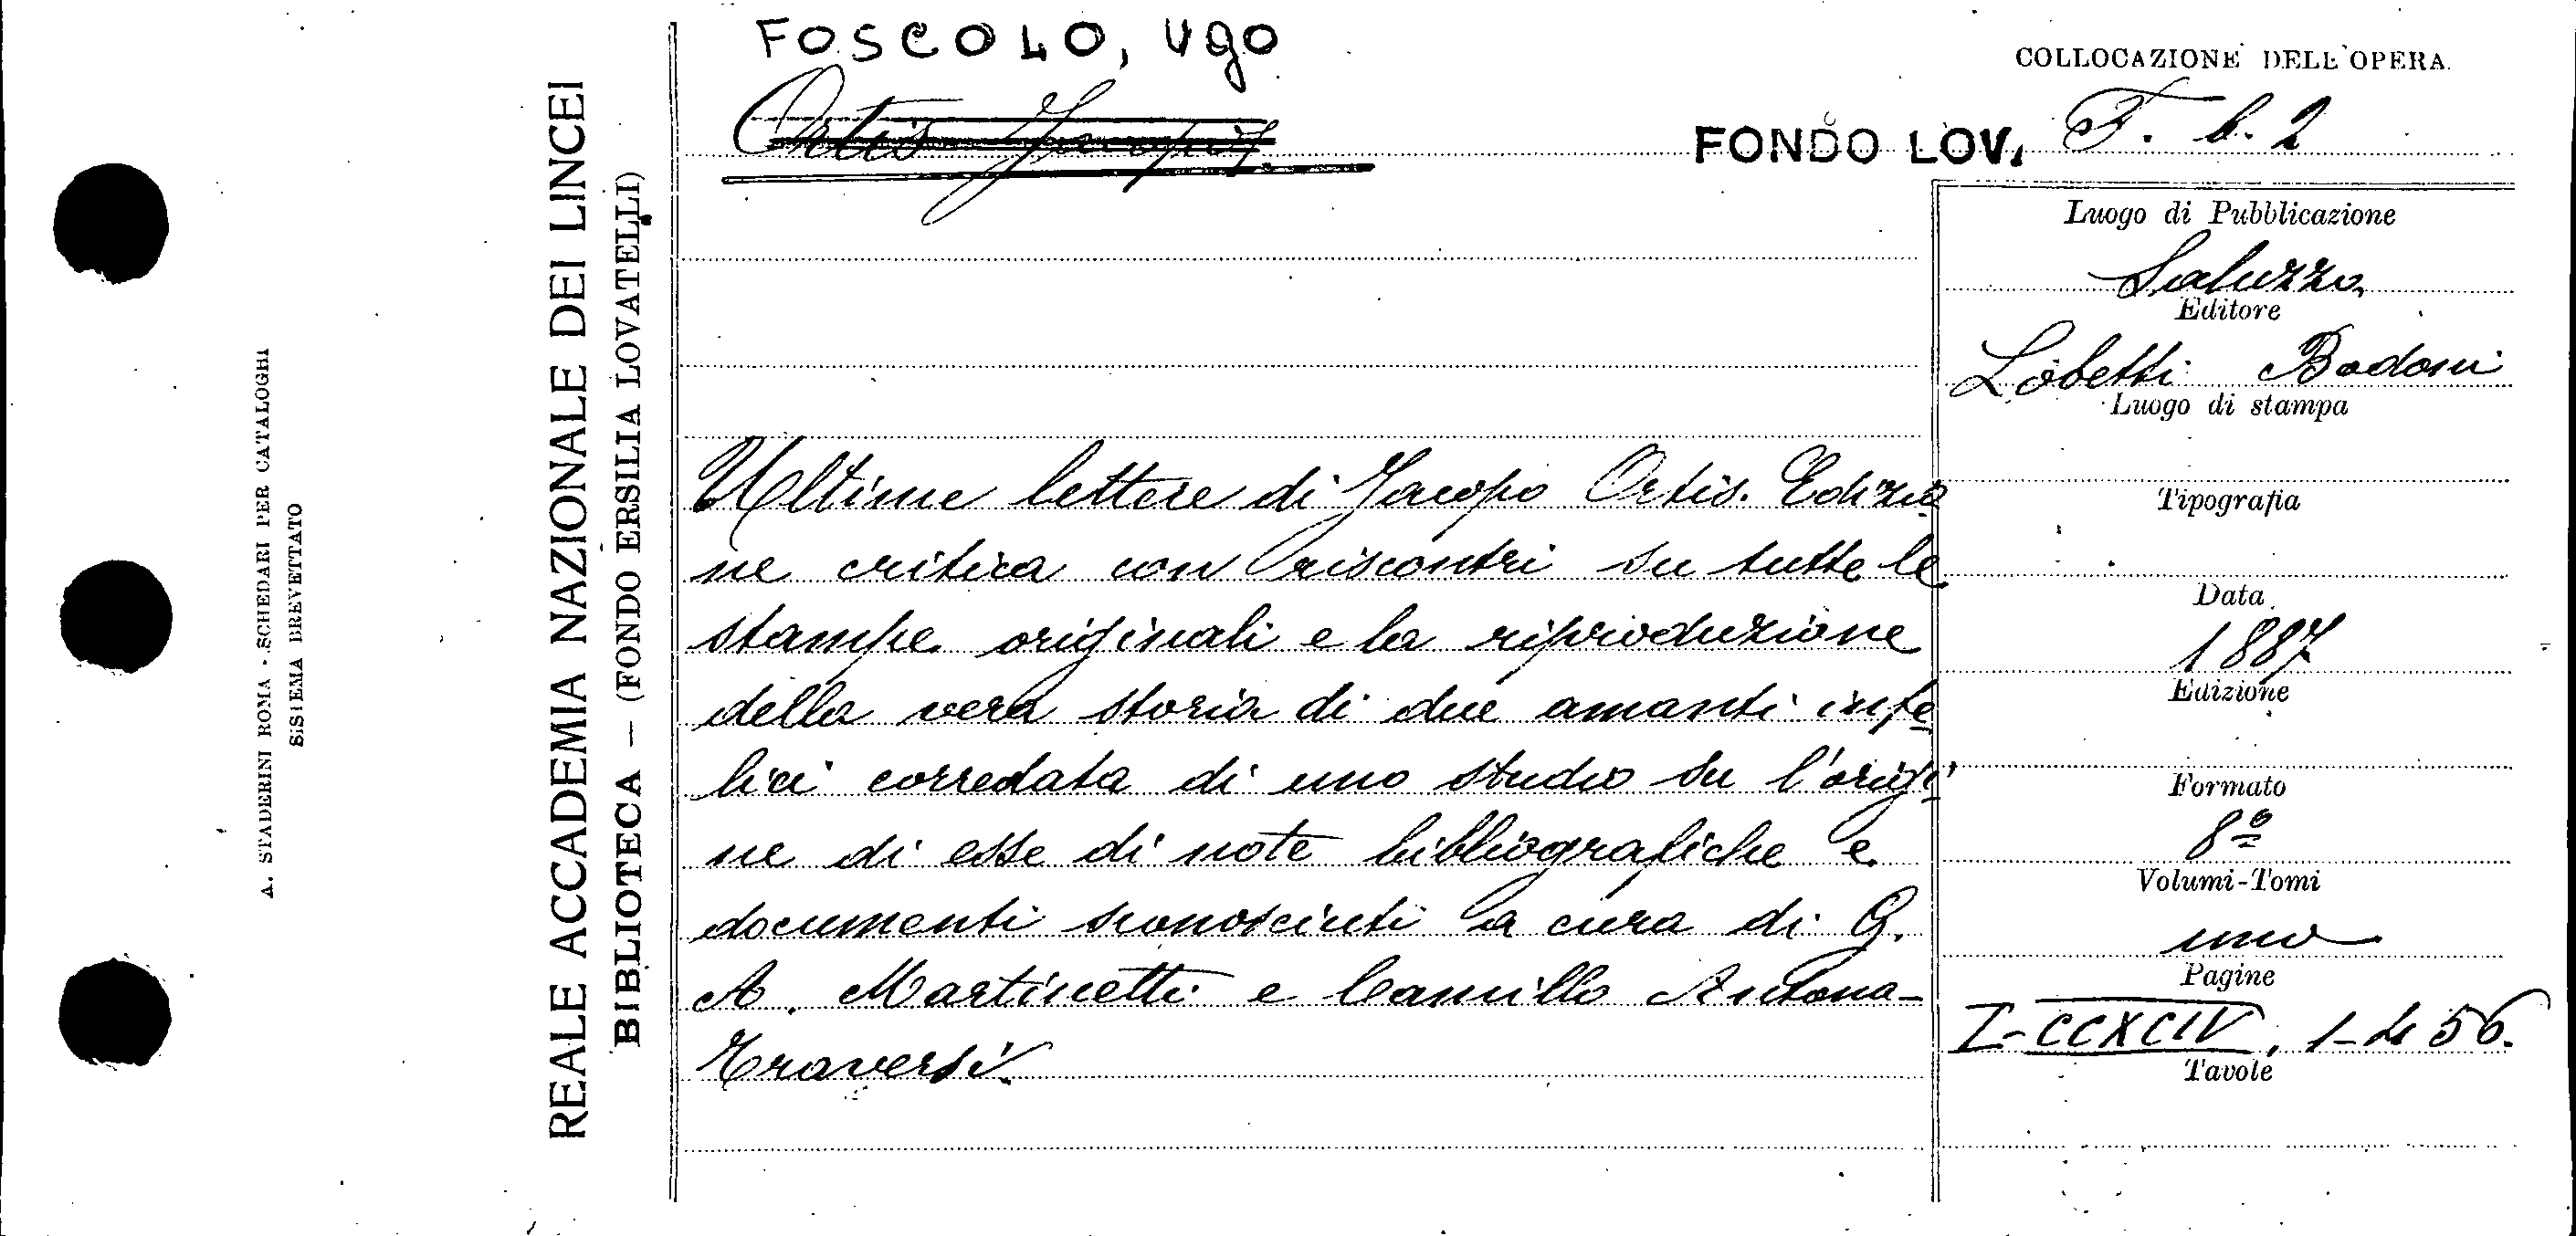 A. STADERINI ROMA - SCHEDARI PER CATALOGHI
SISTEMA BREVETTATO
REALE ACCADEMIA NAZIONALE DEI LINCEI
BIBLIOTECA — (FONDO ERSILIA LOVATELLI)
FOSCOLO, Ugo
Ortis Jacopo
COLLOCAZIONE DELL'OPERA
FONDO LOV. F. b. 2
Ultime lettere di Jacopo Ortis. Edizio
ne critica con riscontri su tutte le
stampe originali e la riproduzione
della vera storia di due amanti infe
lici corredata di uno studio su l'origi
ne di esse di note bibliografiche e
documenti sconosciuti a cura di G.
A. Martinetti e Camillo Antona-
Traversi.
Luogo di Pubblicazione
Saluzzo
Editore
Lobetti Bodoni
Luogo di stampa
Tipografia
Data
1887
Edizione
Formato
8º
Volumi-Tomi
uno
Pagine
I-CCXCIV, 1-456.
Tavole